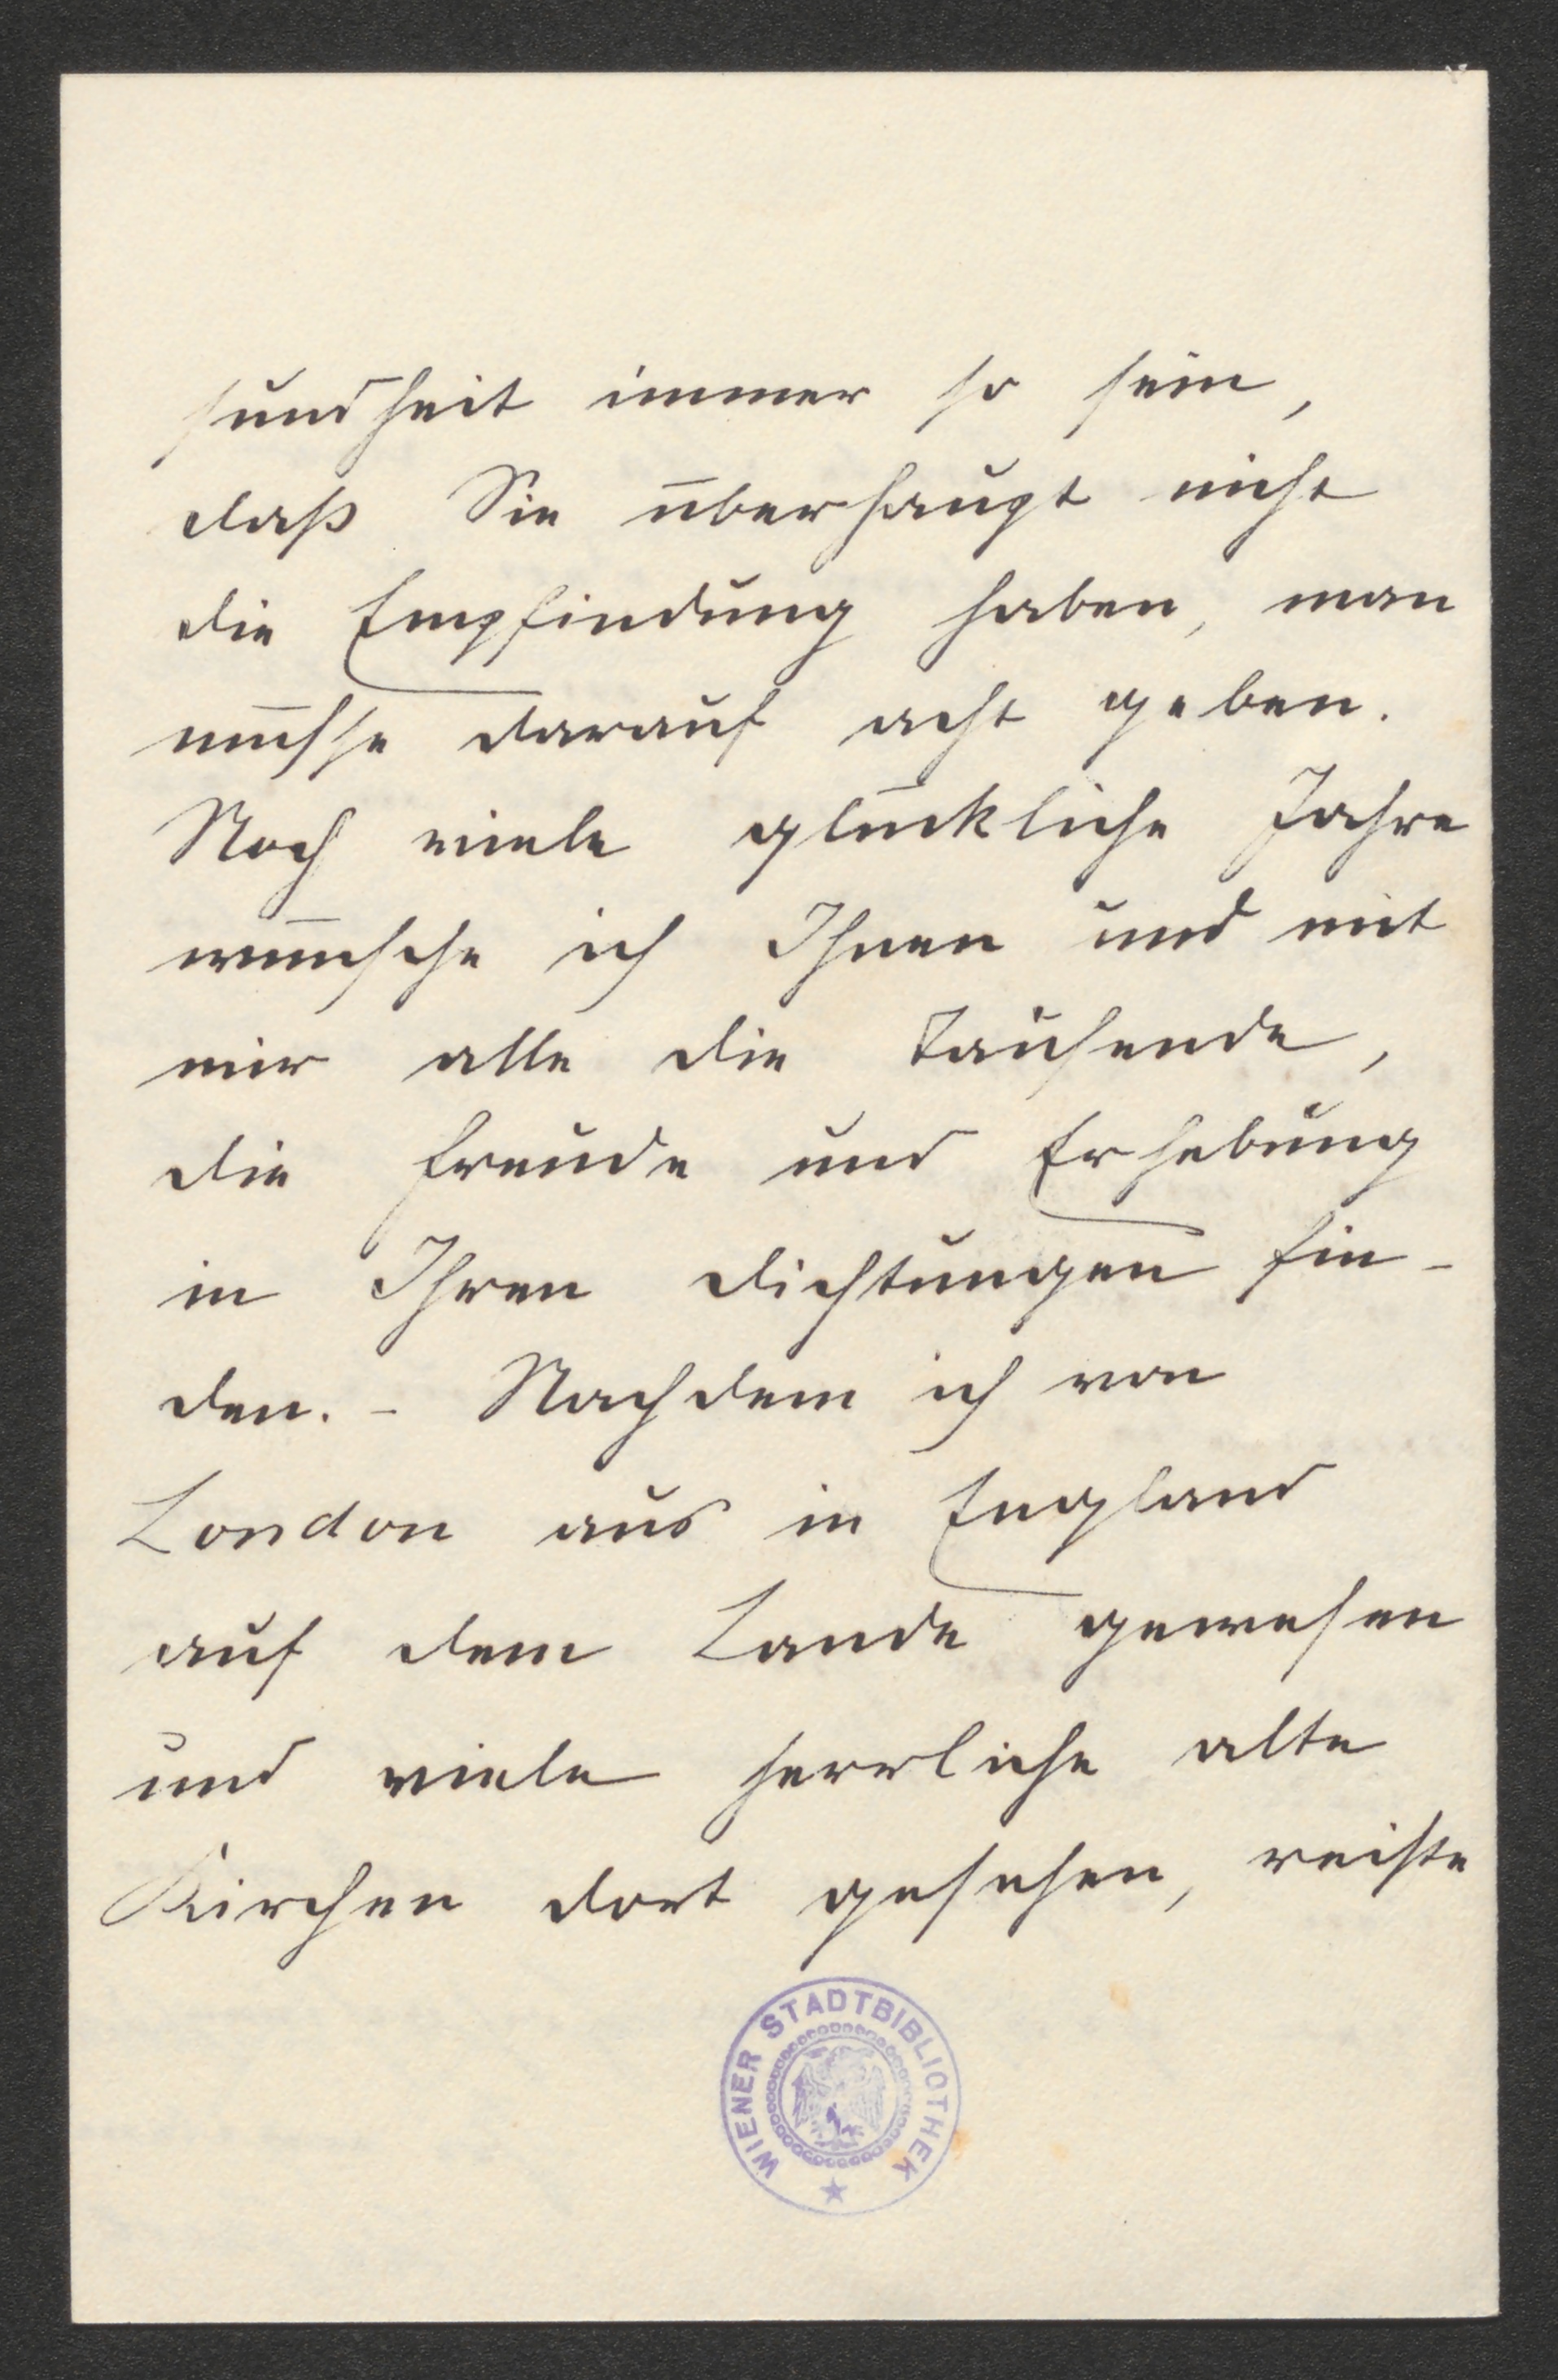 sundheit immer so sein,
daß Sie überhaupt nicht
die Empfindung haben, man
müsse darauf acht geben.
Noch viele glückliche Jahre
wünsche ich Ihnen und mit
mir alle die Tausende,
die Freude und Erhebung
in Ihren Dichtungen fin-
den. – Nachdem ich von
London aus in England
auf dem Lande gewesen
und viele herrliche alte
Kirchen dort gesehen, reiste
WIENER STADTBIBLIOTHEK